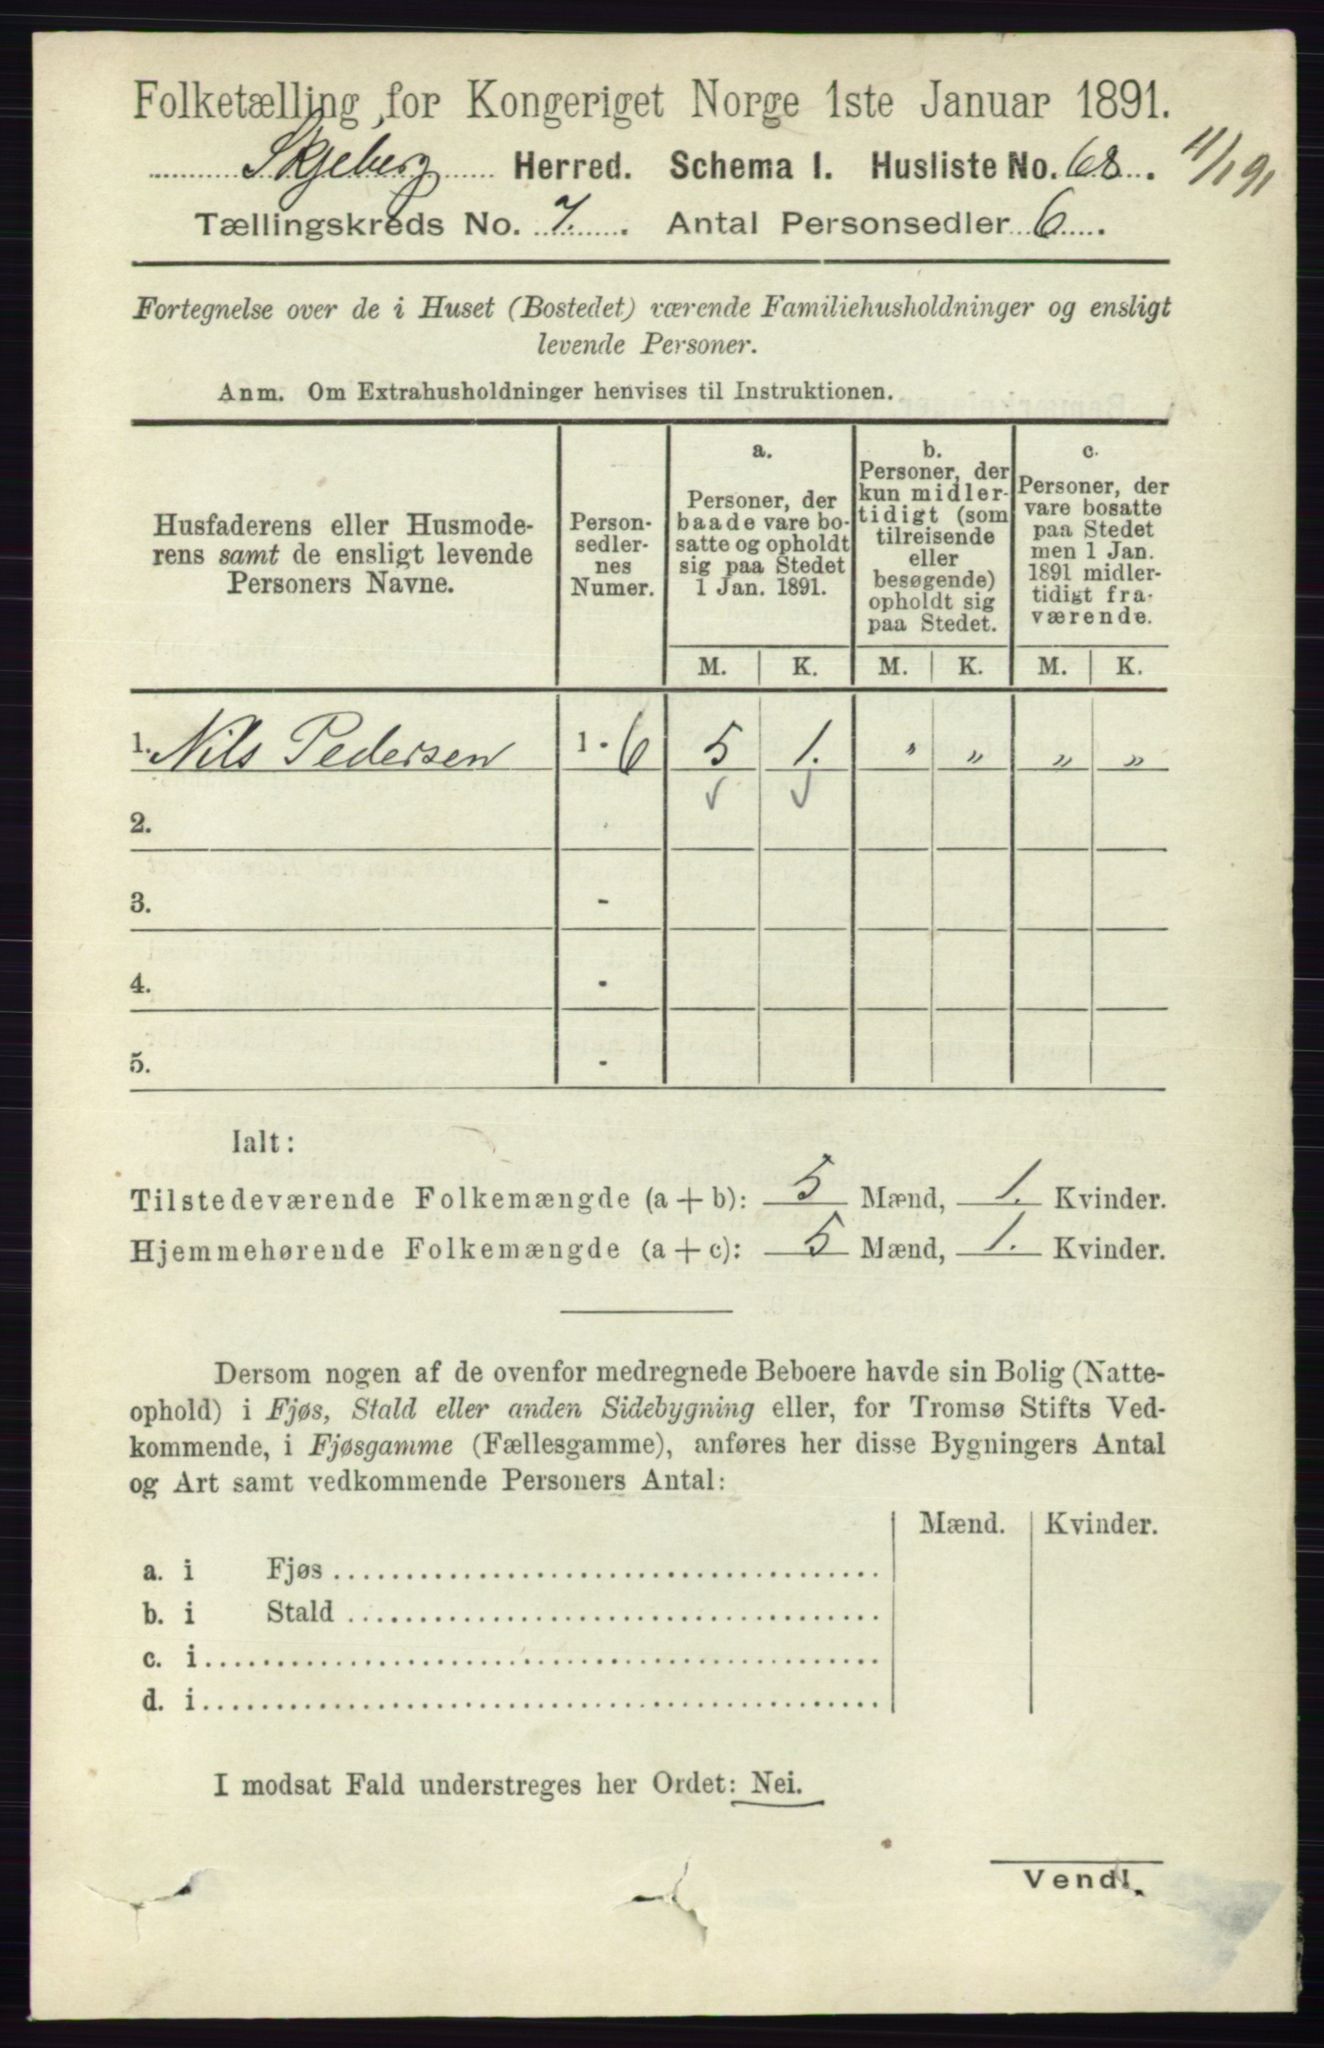 Folketælling for Kongeriget Norge 1ste Januar 1891.
Skjeberg Herred. Schema I. Husliste No. 68. 11/1 91
Tællingskreds No. 7. Antal Personsedler 6.
Fortegnelse over de i Huset (Bostedet) værende Familiehusholdninger og ensligt
levende Personer.
Anm. Om Extrahusholdninger henvises til Instruktionen.
Husfaderens eller Husmode-
rens samt de ensligt levende
Personers Navne.
Person-
sedler-
nes
Numer.
a.
Personer, der
baade vare bo-
satte og opholdt
sig paa Stedet
1 Jan. 1891.
b.
Personer, der
kun midler-
tidigt (som
tilreisende
eller
besøgende)
opholdt sig
paa Stedet.
c.
Personer, der
vare bosatte
paa Stedet
men 1 Jan.
1891 midler-
tidigt fra-
værende.
M. K. M. K. M. K.
1. Nils Pedersen 1 - 6 5 1. " " " "
✓ ✓
2. -
3. -
4. -
5. -
Ialt:
Tilstedeværende Folkemængde (a + b): 5 Mænd, 1. Kvinder.
Hjemmehørende Folkemængde (a + c): 5 Mænd, 1. Kvinder.
Dersom nogen af de ovenfor medregnede Beboere havde sin Bolig (Natte-
ophold) i Fjøs, Stald eller anden Sidebygning eller, for Tromsø Stifts Ved-
kommende, i Fjøsgamme (Fællesgamme), anføres her disse Bygningers Antal
og Art samt vedkommende Personers Antal:
Mænd. Kvinder.
a. i Fjøs
b. i Stald
c. i
d. i
I modsat Fald understreges her Ordet: Nei.
Vend!